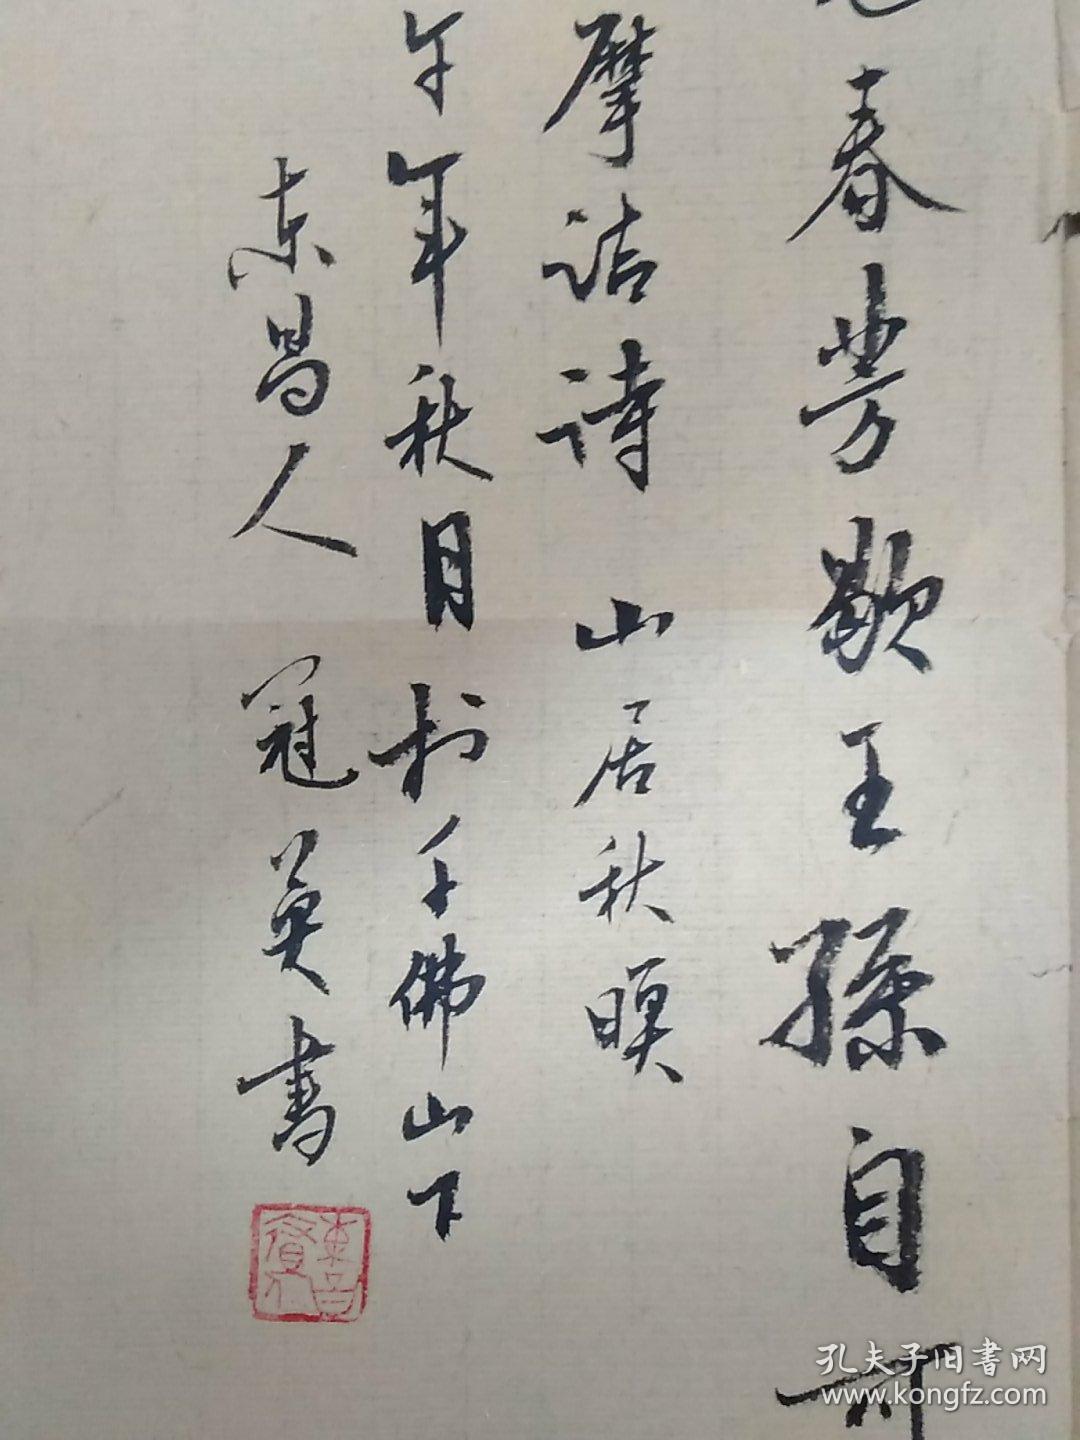 春芳歇王孫自可
摩诘诗 山居秋暝
午年秋月于千佛山下
东昌人 冠英书
孔夫子旧書网
www.kongfz.com